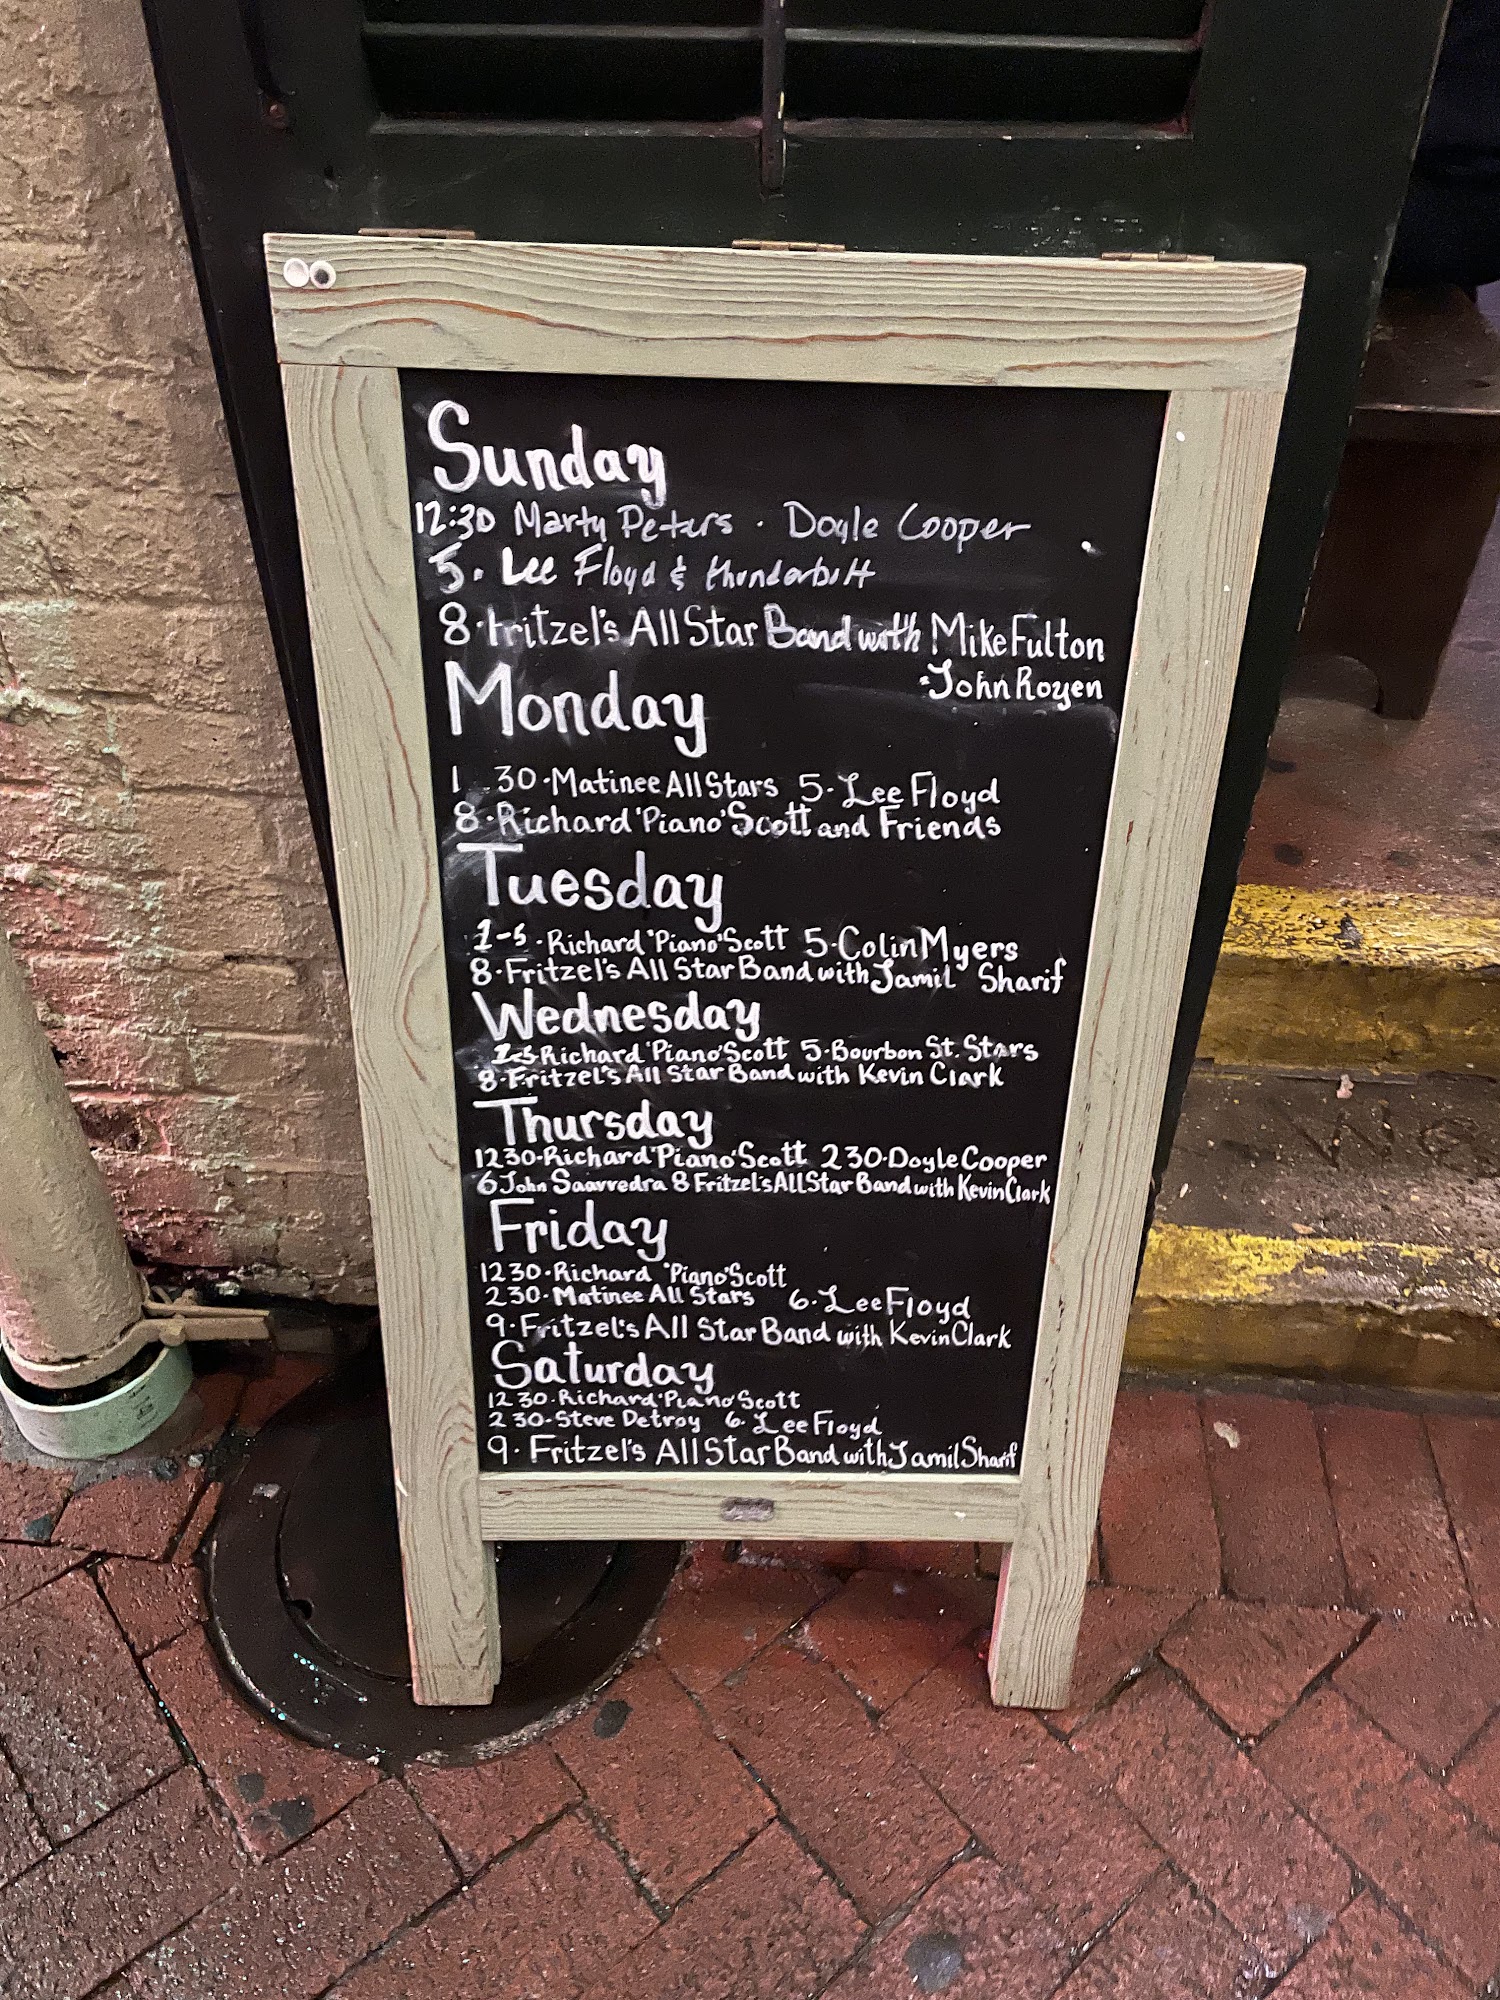 Sunday
12:30 Marty Peters · Doyle Cooper
5. Lee Floyd & thunderbutt
8·Fritzel's All Star Band with Mike Fulton
·John Royen
Monday
1 30·Matinee All Stars 5·Lee Floyd
8·Richard 'Piano' Scott and Friends
Tuesday
1-5·Richard 'Piano' Scott 5·Colin Myers
8·Fritzel's All Star Band with Jamil Sharif
Wednesday
1-5 Richard 'Piano' Scott 5·Bourbon St. Stars
8·Fritzel's All Star Band with Kevin Clark
Thursday
1230·Richard 'Piano' Scott 230·Doyle Cooper
6 John Saavredra 8 Fritzel's All Star Band with Kevin Clark
Friday
1230·Richard 'Piano' Scott
230·Matinee All Stars 6·Lee Floyd
9·Fritzel's All Star Band with Kevin Clark
Saturday
12 30·Richard 'Piano' Scott
2 30·Steve Detroy 6· Lee Floyd
9· Fritzel's All Star Band with Jamil Sharif